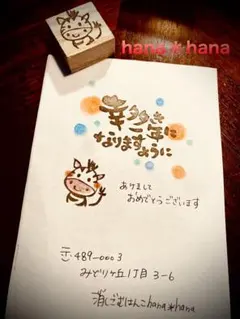 hana*hana
幸多き
一年に
なりますように
あけまして
おめでとうございます
〒489-0003
みどりヶ丘1丁目3-6
消しごむはんこhana*hana